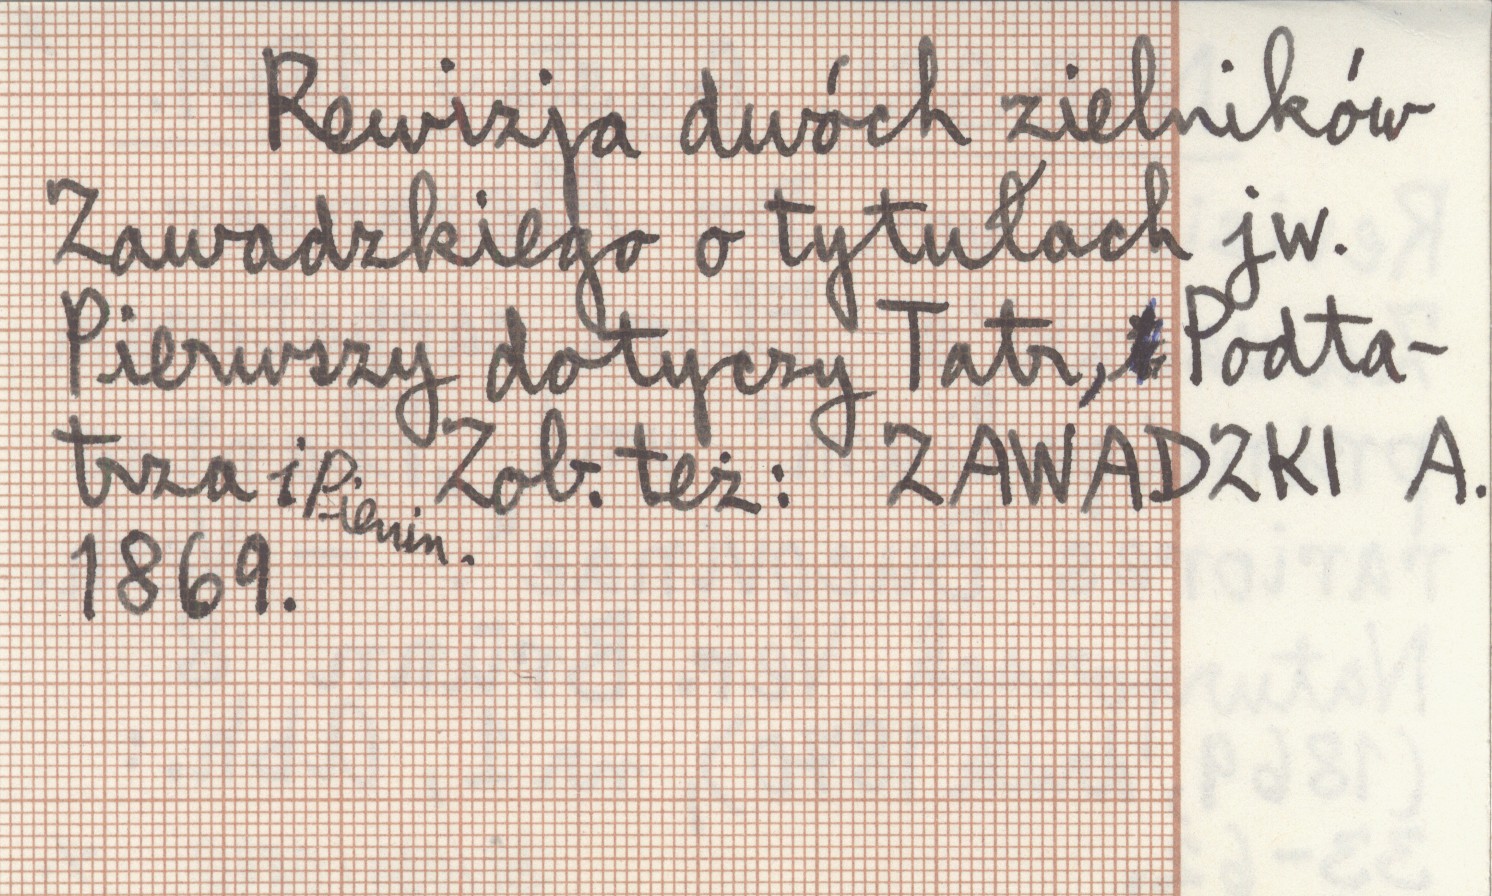 Rewizja dwóch zielników
Zawadzkiego o tytułach jw.
Pierwszy dotyczy Tatr, Podta-
trza i Pienin. Zob. też: ZAWADZKI A.
1869.